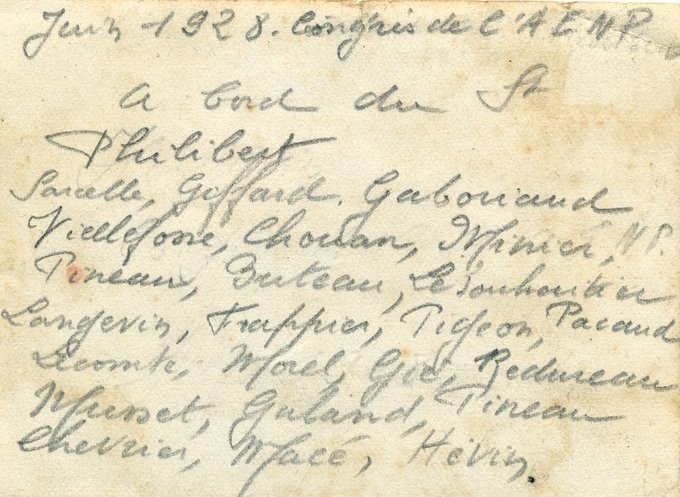 Juin 1928. Congrès de l'AENP
A bord du St
Philibert
Sarcelle, Giffard. Gabouiaud
Villefosse, Chouan, Minier, NP.
Pineau, Buteau, Le
Langevin, Frappier, Pigeon, Pacaud
Lecomte, Morel, Redureau
Musset, Galand, Pineau
Chevrier, Macé, Hévin.